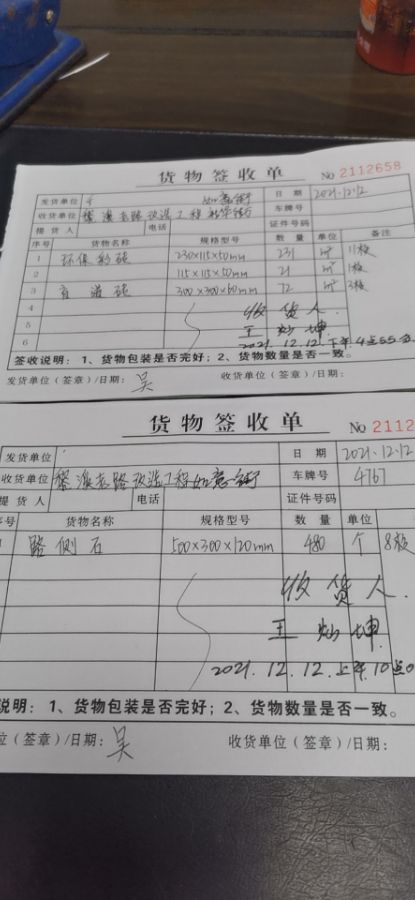 货物签收单 No 2112658
发货单位 如意街 日期 2021.12.12
收货单位 黎澳老路改造工程 科学街 车牌号
提货人 电话 证件号码
序号 货物名称 规格型号 数量 单位 备注
1 环保彩砖 230×115×50mm 231 m² 11板
2 115×115×50mm 21 m² 1板
3 盲道砖 300×300×60mm 72 m² 3板
4 收货人
5 王灿坤
6 2021.12.12.下午4点55分
签收说明：1、货物包装是否完好；2、货物数量是否一致。
发货单位（签章）/日期：吴 收货单位（签章）/日期：
货物签收单 No 2112
发货单位 日期 2021.12.12
收货单位 黎澳老路改造工程如意街 车牌号 4767
提货人 电话 证件号码
序号 货物名称 规格型号 数量 单位
路侧石 500×300×120mm 480 个 8板
收货人.
王灿坤.
2021.12.12.上午10点0
说明：1、货物包装是否完好；2、货物数量是否一致。
位（签章）/日期：吴 收货单位（签章）/日期：